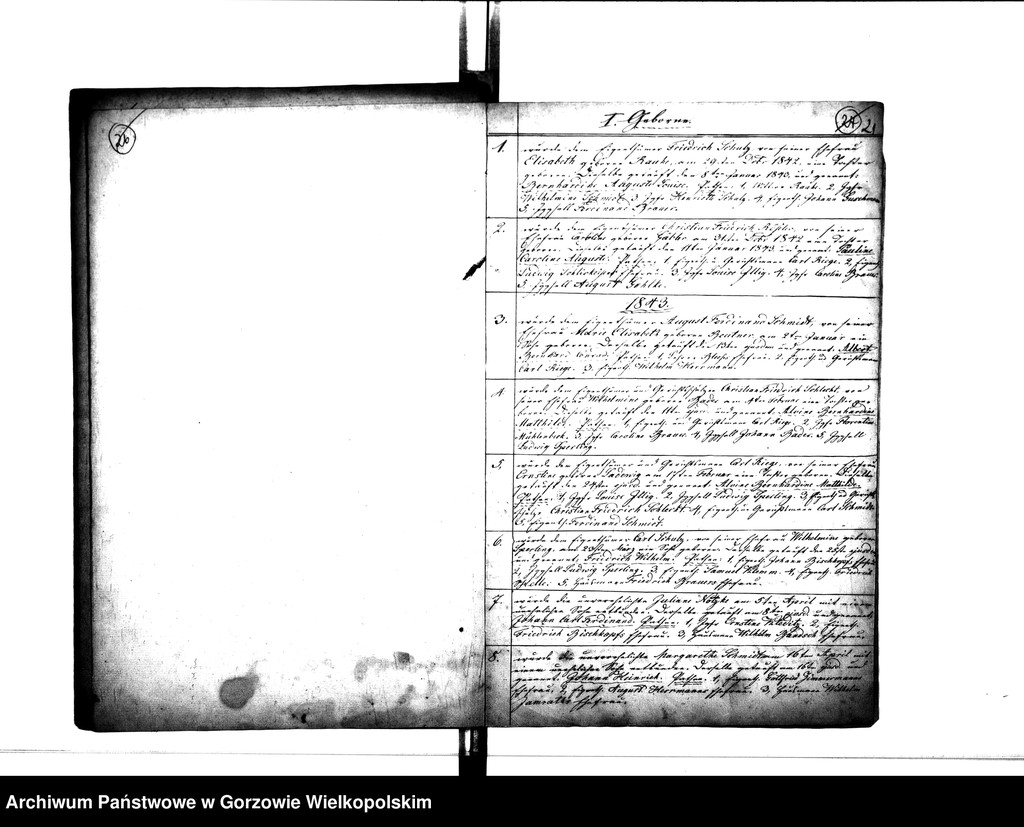 26
I. Geborne.
24 21
1. wurde dem Eigenthümer Friedrich Schulz von seiner Ehefrau
Elisabeth geborne Rauh, am 29. ten Dcbr. 1842, eine Tochter
geboren. Dieselbe getauft den 8ten Januar 1843, und genannt:
Bernhardine Auguste Louise. Pathen: 1, Rauh. 2, Jgfr.
Wilhelmine Schmidt 3, Jgfr. Henriette Schulz. 4, Eigenth. Johann
5, Jggsell Ferdinand Brauer.
2. wurde dem Eigenthümer Christian Friedrich von seiner
Ehefrau Caroline geborne am 31. ten Dcbr. 1842 eine Tochter
geboren. Dieselbe getauft den Januar 1843 und genannt: Pauline
Caroline Auguste. Pathen: 1, Eigenth. u. Gerichtsmann Carl Riege. 2, Eigenth.
Ludwig Ehefrau. 3, Jgfr. Louise Illig. 4, Jgfr. Caroline Brauer.
5, Jggsell August
1843.
3. wurde dem Eigenthümer August Ferdinand Schmidt, von seiner
Ehefrau Marie Elisabeth geborne Beutner, am 2ten Januar ein
Sohn geboren. Derselbe getauft den ejusdem und genannt: Albert
Bernhard Conrad. Pathen: 1, Ehefrau. 2, Eigenth. u. Gerichtsmann
Carl Riege. 3, Eigenth. Wilhelm Herrmann.
4. wurde dem Eigenthümer und Gerichtsschulze Christian Friedrich Schlecht, von
seiner Ehefrau Wilhelmine geborne Bader am 4ten Februar eine Tochter ge-
boren. Dieselbe getauft den ejusd. und genannt: Alwine Bernhardine
Matthilde. Pathen: 1, Eigenth. und Gerichtsmann Carl Riege. 2, Jgfr. Florentine
Mühlenbeck. 3, Jgfr. Caroline Brauer. 4, Jggsell Johann Bader. 5, Jggsell
Ludwig Sperling.
5. wurde dem Eigenthümer und Gerichtsmann Carl Riege, von seiner Ehefrau
Ernstine geborne am 17ten Februar eine Tochter geboren. Dieselbe
getauft den ejusd. und genannt: Alwine Bernhardine Matthilde.
Pathen: 1, Jgfr. Louise Illig. 2, Jggsell Ludwig Sperling. 3, Eigenth. u. Gerichts-
schulze Christian Friedrich Schlecht. 4, Eigenth. u. Gerichtsmann Carl Schmidt.
5, Eigenth. Ferdinand Schmidt.
6. wurde dem Eigenthümer Carl Schulz, von seiner Ehefrau Wilhelmine geborne
Sperling, am März ein Sohn geboren. Derselbe getauft den ejusdem
und genannt: Friedrich Wilhelm. Pathen: 1, Eigenth. Johann Bischkopfs Ehefrau
2, Jggsell Ludwig Sperling. 3, Eigenth. Samuel Klemm. 4, Eigenth. Friedrich
5, Häusmann Friedrich Brauers Ehefrau.
7. wurde die unverehelichte Juliane am 5ten April mit einem
unehelichen Sohn entbunden. Derselbe getauft am 8ten ejusd. und genannt:
Johann Carl Ferdinand. Pathen: 1, Jgfr. Ernstine 2, Eigenth.
Friedrich Bischkopfs Ehefrau. 3, Häusmann Wilhelm Ehefrau.
8. wurde die unverehelichte Margarethe Schmidt am 16ten April mit
einem unehelichen Sohn entbunden. Derselbe getauft am ejusd. und
genannt: Johann Heinrich. Pathen: 1, Eigenth. Gottfried Zimmermanns
Ehefrau. 2, Eigenth. August Herrmanns Ehefrau. 3, Häusmann Wilhelm
Ehefrau.
Archiwum Państwowe w Gorzowie Wielkopolskim